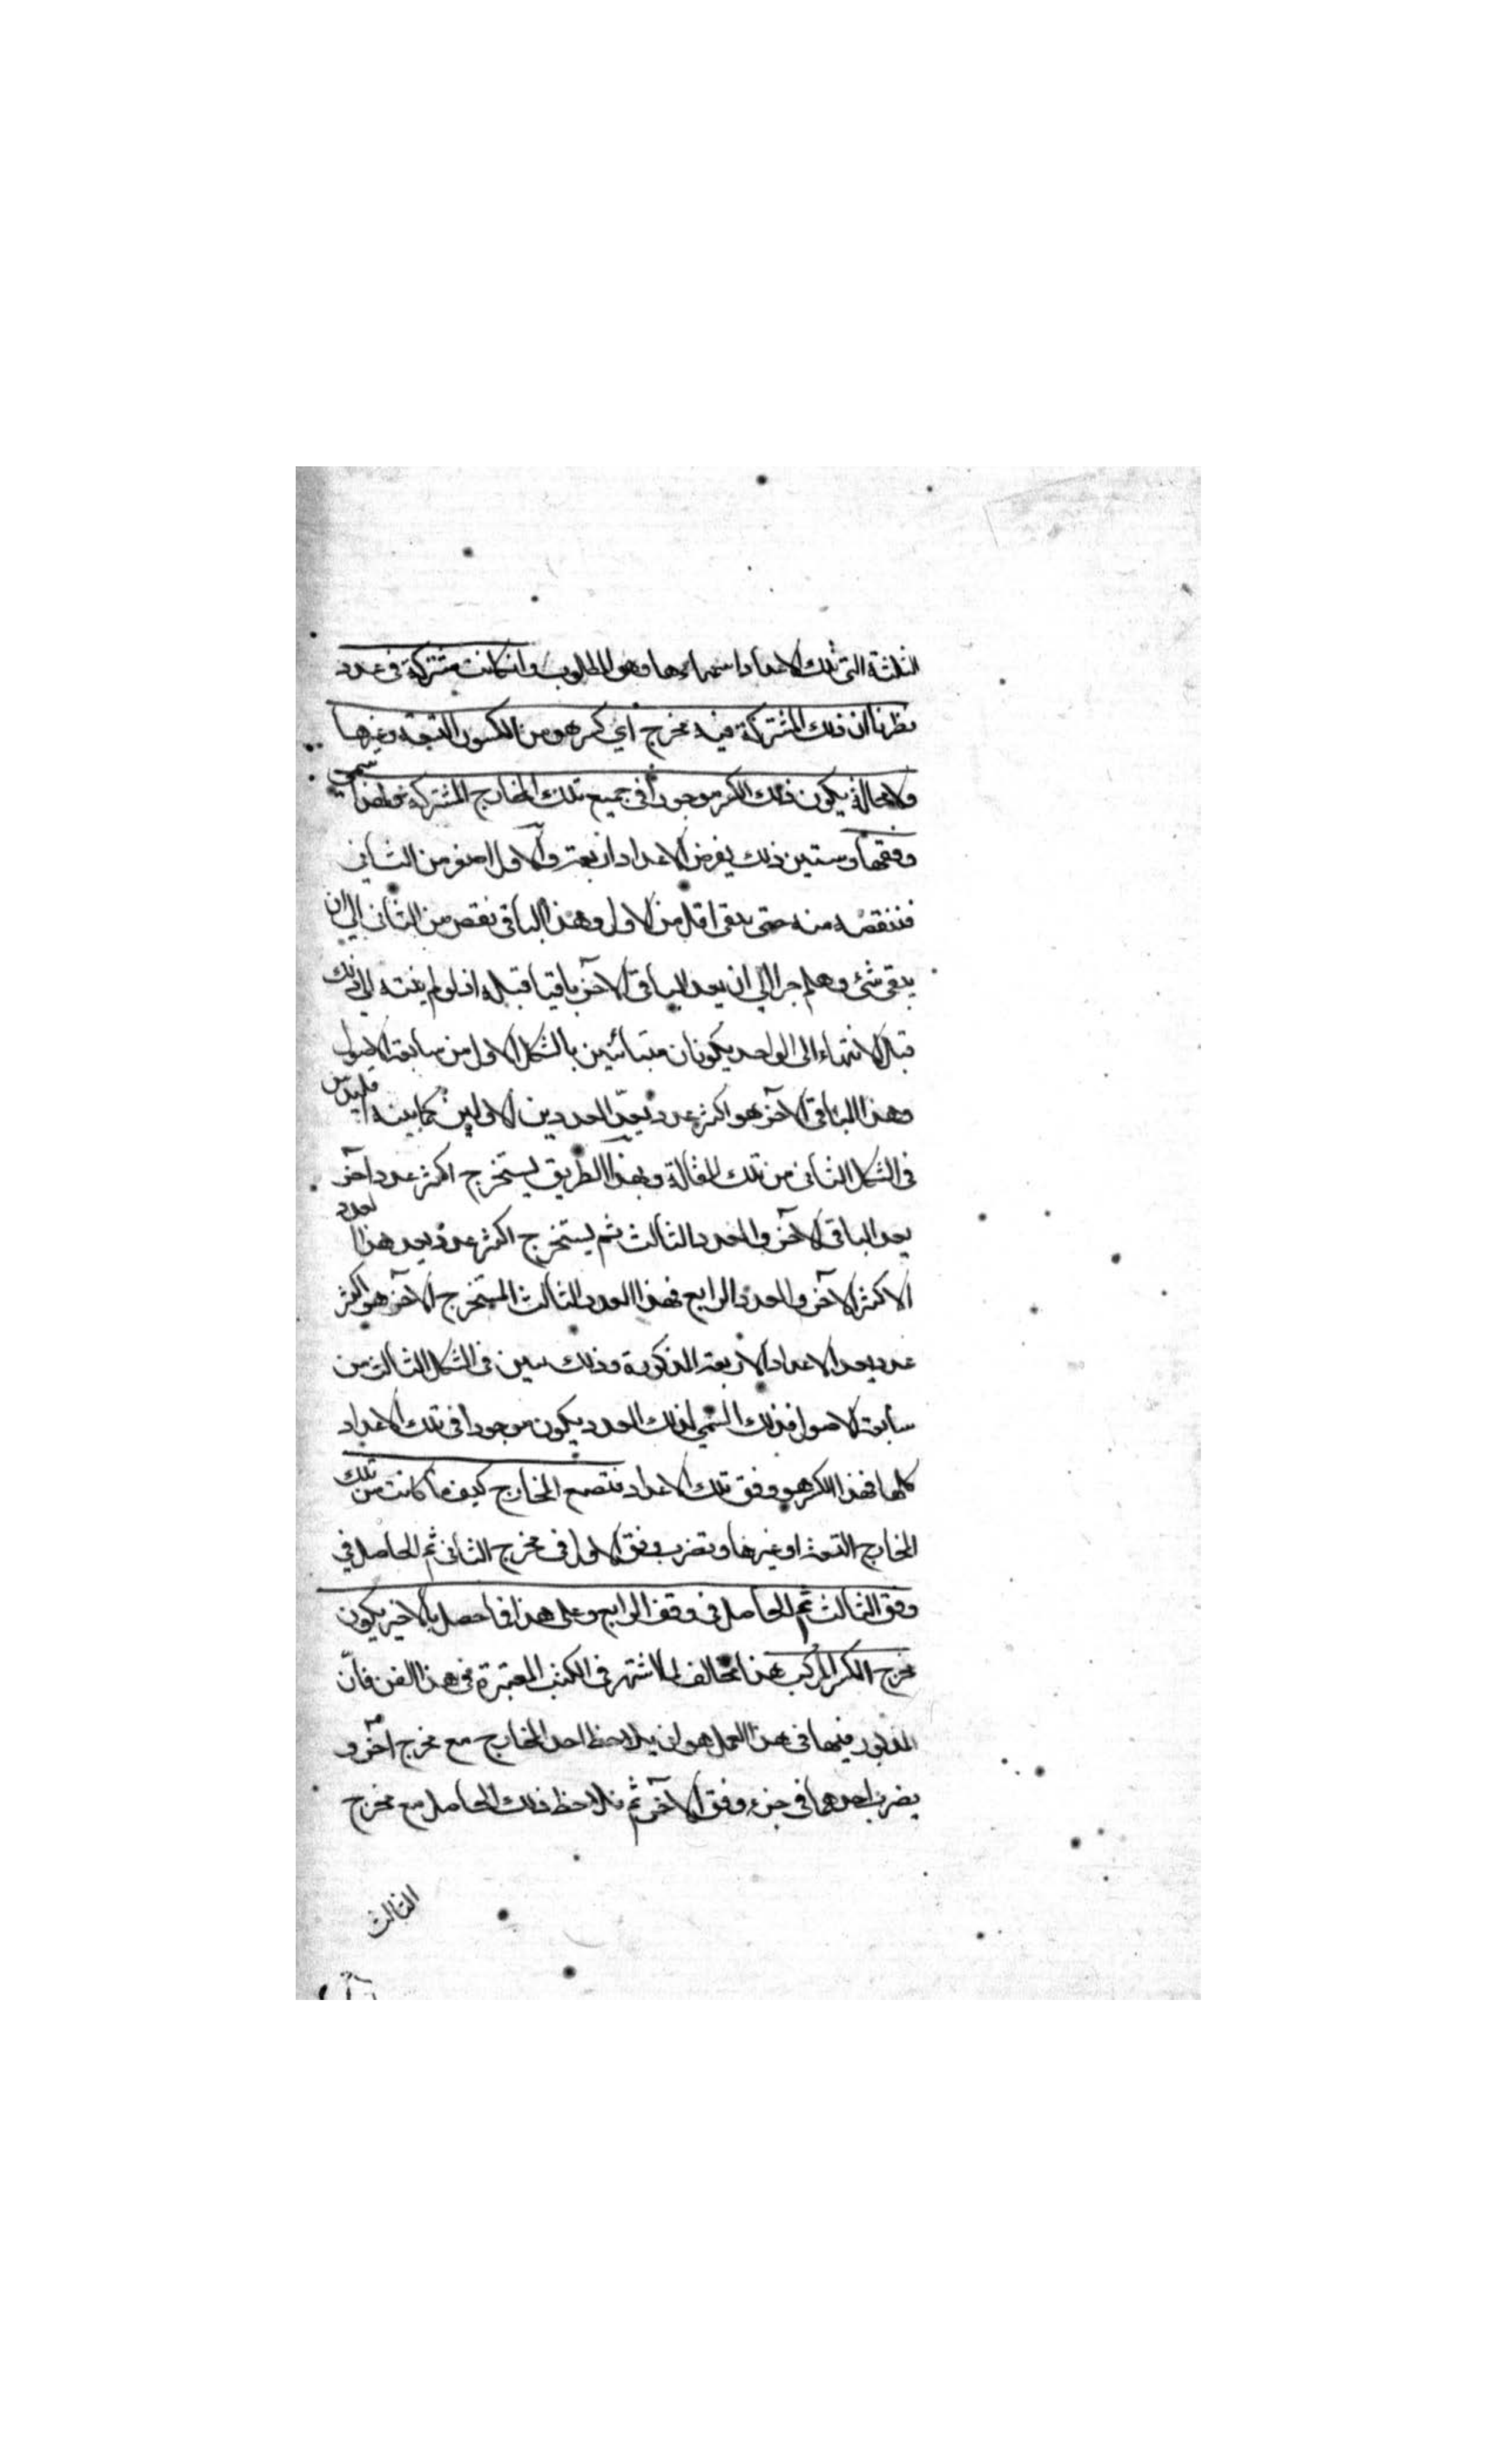 الثلثة التى تلك الاعداد اسماءها وهو المطلوب وان كانت مشتركة فى عدد
نظرنا ان ذلك المشتركة فيه مخرج اي كسر هو من الكسور التسعة وغيرها
ولا محالة يكون ذلك الكسر موجودا فى جميع تلك المخارج المشتركة فهذا يسمى
وفقها وستبين ذلك بفرض الاعداد اربعة والاول اصغر من الثانى
فننقصه منه حتى يبقى اقل من الاول وهذا الباقى نقص من الثانى الى ان
يبقى شئ وهلم جرا الى ان يعد الباقى الآخر باقيا قبله اذ لو لم ينته الى ذلك
قبل الانتهاء الى الواحد يكونان متبائنين بالشكل الاول من سابعة الاصول
وهذا الباقى الآخر هو اكثر عدد يعدّ العددين الاولين كما بينه اقليدس
فى الشكل الثانى من تلك المقالة وبهذا الطريق يستخرج اكثر عدد آخر
يعد الباقى الآخر والعدد الثالث ثم يستخرج اكثر عدد يعد هذا العدد
الاكثر الآخر والعدد الرابع فهذا العدد الثالث المستخرج الآخر هو اكثر
عدد يعد الاعداد الاربعة المذكورة وذلك يبين فى الشكل الثالث من
سابعة الاصول فذلك السمي لذلك العدد يكون موجودا فى تلك الاعداد
كلها فهذا الكسر هو وفق تلك الاعداد فتضع المخارج كيف ما كانت من تلك
المخارج التسعة او غيرها وتضرب وفق الاول فى مخرج الثانى ثم الحاصل في
وفق الثالث ثم الحاصل فى وفق الرابع وعلى هذا فما حصل بالاخير يكون
مخرج الكسر المركب هذا مخالف لما اشتهر فى الكتب المعتبرة فى هذا الفن فانّ
المذكور فيها فى هذا العمل هو ان يلاحظ احد المخارج مع مخرج آخر و
يضرب احدهما فى جزء وفق الآخر ثم يلاحظ ذلك الحاصل مع مخرج
الثالث